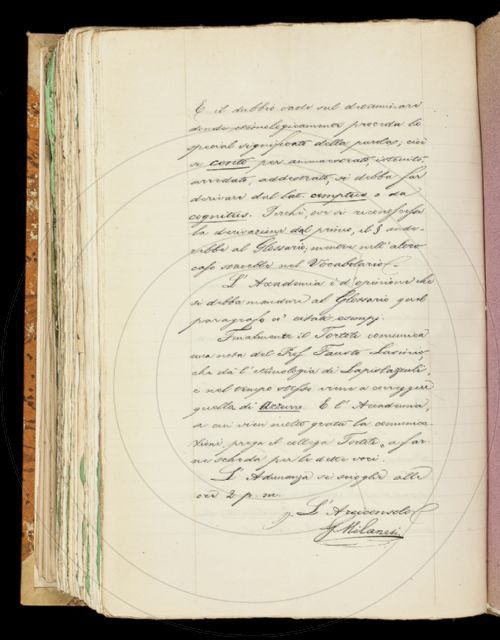 E il dubbio cade sul disaminare
donde etimologicamente proceda lo
special significato della parola; cioè
se conto per ammaestrato, istruito,
arredato, addestrato, si debba far
derivare dal lat. comptus o da
cognitus. Perchè, ove si riconoscesse
la derivazione dal primo, il § ande-
rebbe al Glossario, mentre nell'altro
caso starebbe nel Vocabolario.
L'Accademia è d'opinione che
si debba mandare al Glossario quel
paragrafo co' citati esempj.
Finalmente il Tortoli comunica
una nota del Prof. Fausto Lasinio
che dà l'etimologia di Lapislazzuli,
e nel tempo stesso viene a correggere
quella di Azzurro. E l'Accademia,
a cui vien molto grata la comunica-
zione, prega il collega Tortoli a far-
ne scheda per le dette voci.
L'Adunanza si scioglie alle
ore 2 p. m.
L'Arciconsolo
G. Milanesi